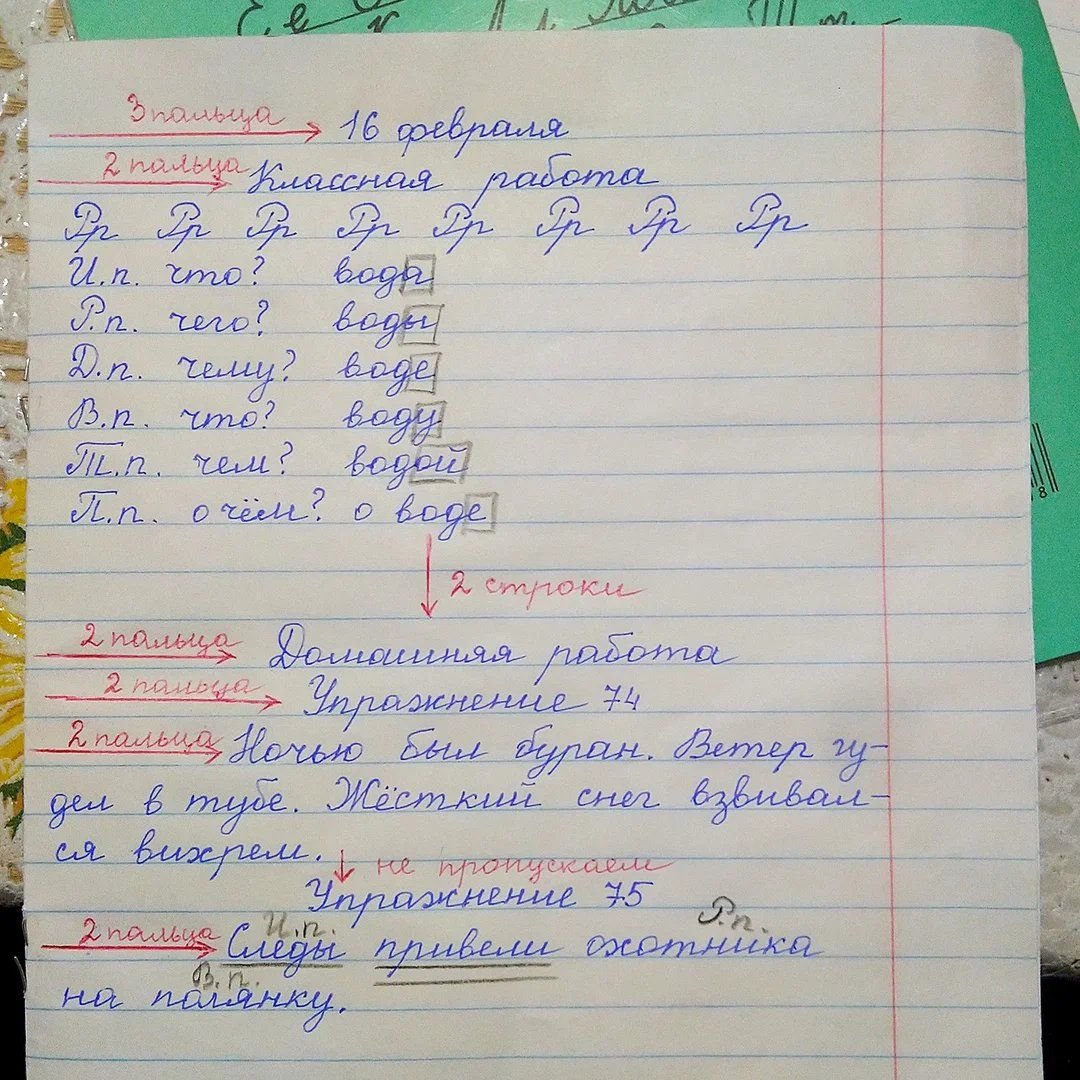 3 пальца 16 февраля
2 пальца Классная работа
Рр Рр Рр Рр Рр Рр Рр Рр
И.п. что? вода
Р.п. чего? воды
Д.п. чему? воде
В.п. что? воду
Т.п. чем? водой
П.п. о чём? о воде
2 строки
2 пальца Домашняя работа
2 пальца Упражнение 74
2 пальца Ночью был буран. Ветер гу-
дел в тубе. Жёсткий снег взвивал-
ся вихрем. не пропускаем
Упражнение 75
И.п. Р.п.
2 пальца Следы привели охотника
В.п.
на полянку.
8